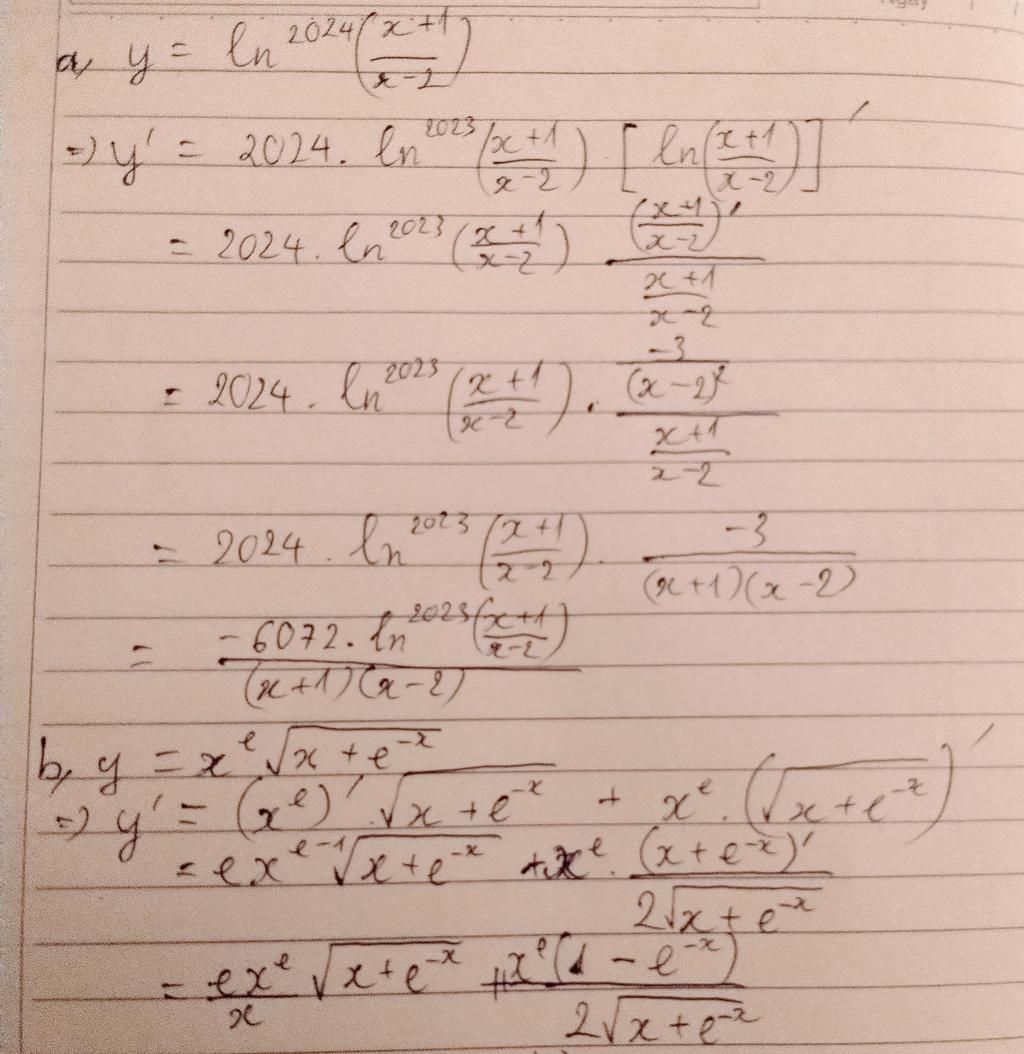 a, y = ln^2024((x+1)/(x-2))
=> y' = 2024. ln^2023((x+1)/(x-2)) . [ln((x+1)/(x-2))]'
= 2024. ln^2023((x+1)/(x-2)) ((x+1)/(x-2))' / ((x+1)/(x-2))
= 2024. ln^2023((x+1)/(x-2)) . (-3/(x-2)²) / ((x+1)/(x-2))
= 2024. ln^2023((x+1)/(x-2)) . -3/((x+1)(x-2))
= -6072. ln^2023((x+1)/(x-2)) / ((x+1)(x-2))
b, y = x^e √(x + e^-x)
=> y' = (x^e)' . √(x + e^-x) + x^e . (√(x + e^-x))'
= ex^(e-1) √(x + e^-x) + x^e . (x + e^-x)' / (2√(x + e^-x))
= ex^e/x √(x + e^-x) + x^e(1 - e^-x) / (2√(x + e^-x))